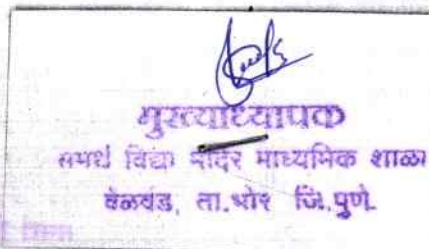 मुख्याध्यापक
समर्थ विद्या मंदिर माध्यमिक शाळा
वेळवंड, ता.भोर जि.पुणे.